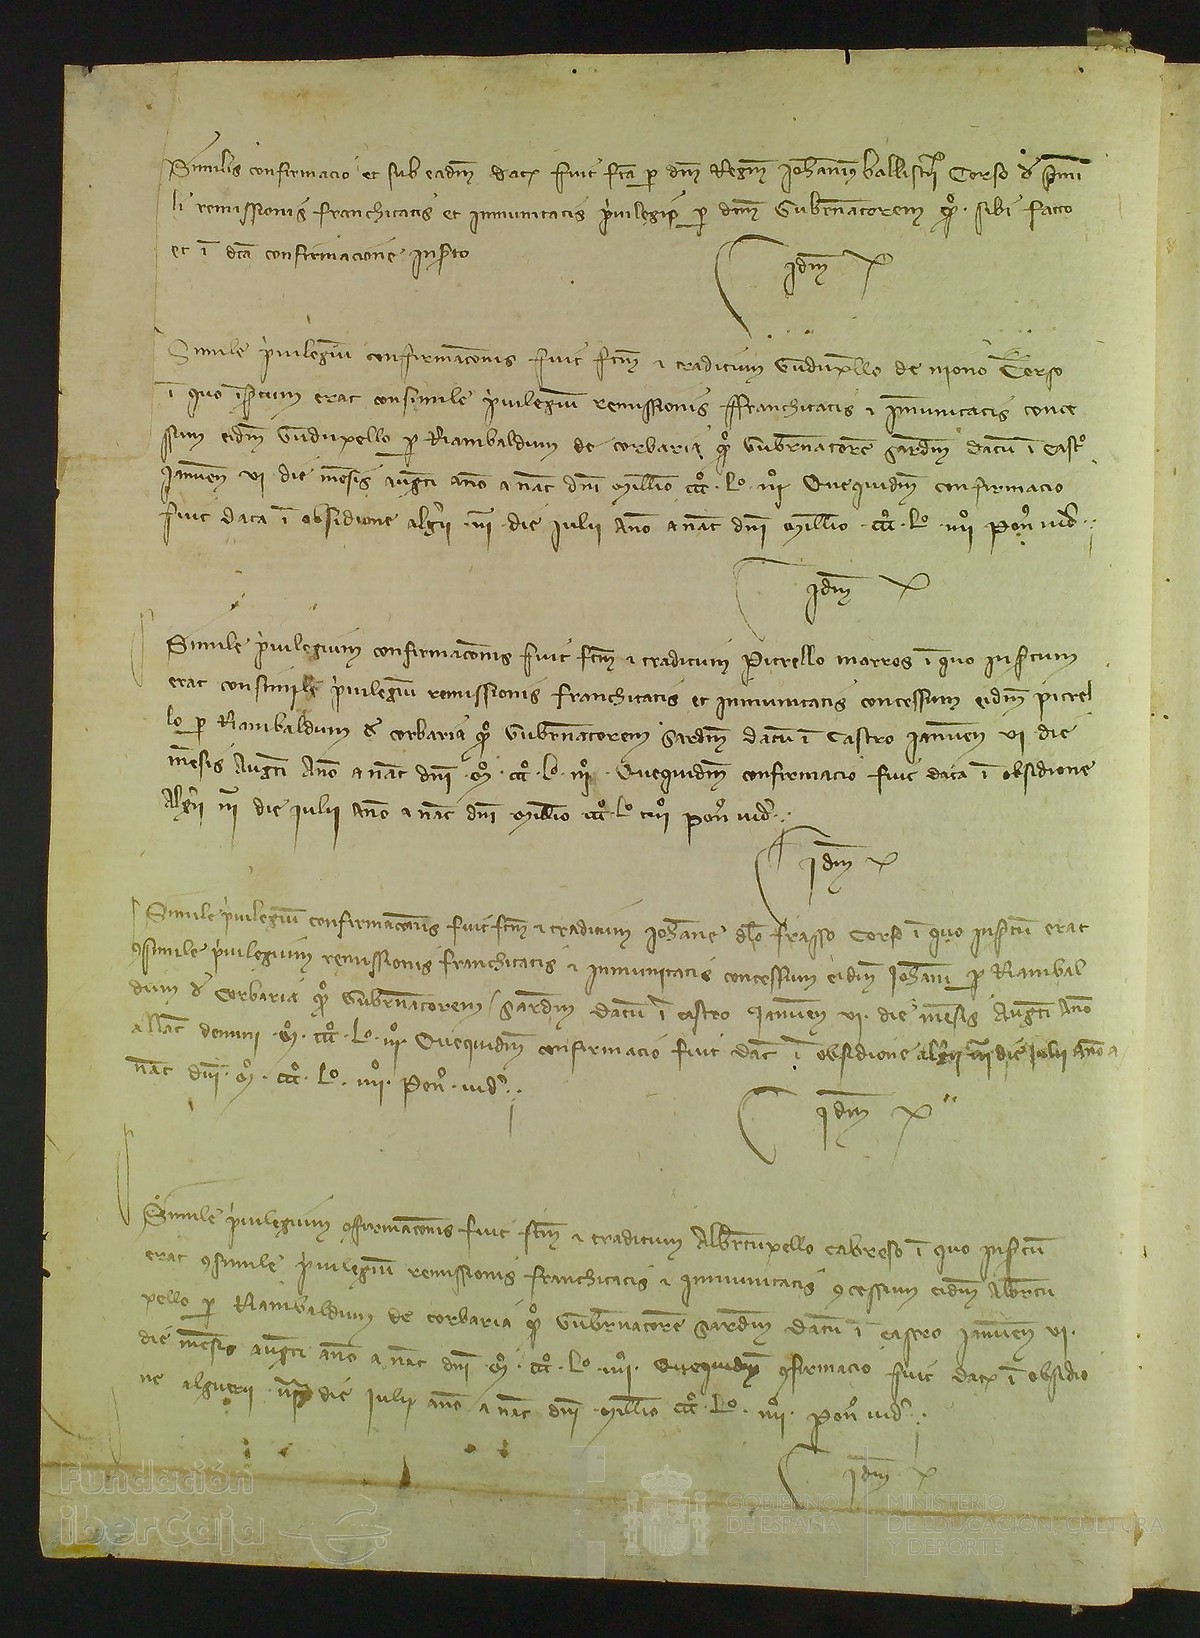 Similis confirmacio et sub eadm dat fuit fca p dnm Regem Johanni ballistarii Corso de simi
li remissionis franchitatis et inmunitatis privilegio p dcm Gubnatorem qo. sibi facto
et i dca confirmacione inserto
Idm
Simile privilegiu confirmaconis fuit fcm & traditum Gudupello de mono Corso
i quo isertum erat consimile privilegiu remissionis ffranchitatis & inmunitatis conce
ssum eidm Gudupello p Riambaldum de corbaria qo Gubnatore Sardm datu i castro
Januen vi die mesis augti ano a nat dni millio ccco. Lo. iiio Quequidm confirmacio
fuit data i obsidione algerii iiia die Julii Ano a nat dni millio ccco. Lo. iiiio pont vid
Idm
Simile privilegium confirmaconis fuit fcm & traditum Pitrello marros i quo insertum
erat consimile privilegiu remissionis franchitatis et inmunitatis concessum eidm pitrel
lo p Riambaldum de corbaria qo Gubnatorem Sardm datu i Castro Januen vi die
mesis Augti Ano a nat dni mo. ccco. Lo. iiio. Quequidm confirmacio fuit data i obsidione
Algerii iiia die Julii ano a nat dni millio ccco. Lo iiiio pont vid
Idm
Simile privilegiu confirmaconis fuit fcm & traditum Johane dlo frasso Corso i quo insertu erat
9simile privilegium remissionis franchitatis & inmunitatis concessum eidm Johani p Riambal
dum de Corbaria qo Gubnatorem Sardm datu i castro Januen vi. die mesis Augti Ano
a nat domini mo. ccco. Lo. iiio. Quequidm confirmacio fuit dat i obsidione algerii iiia die Julii ano a
nat dni. mo. ccco. Lo. iiiio. pont. vid
Idm
Simile privilegium 9firmaconis fuit fcm & traditum Albertupello cabreso i quo insertu
erat 9simile privilegiu remissionis franchitatis & inmunitatis 9cessum eidm Albertu
pello p Riambaldum de corbaria qo Gubnatore Sardm datu i castro Januen vi.
die mesis augti ano a nat dni mo. ccco. Lo. iiio. Quequidm 9firmacio fuit dat i obsidio
ne alguerii iiia die Julii ano a nat dni millio ccco. Lo. iiiio. pont vid
Idm
Fundación
iberCaja
GOBIERNO
DE ESPAÑA
MINISTERIO
DE EDUCACIÓN, CULTURA
Y DEPORTE